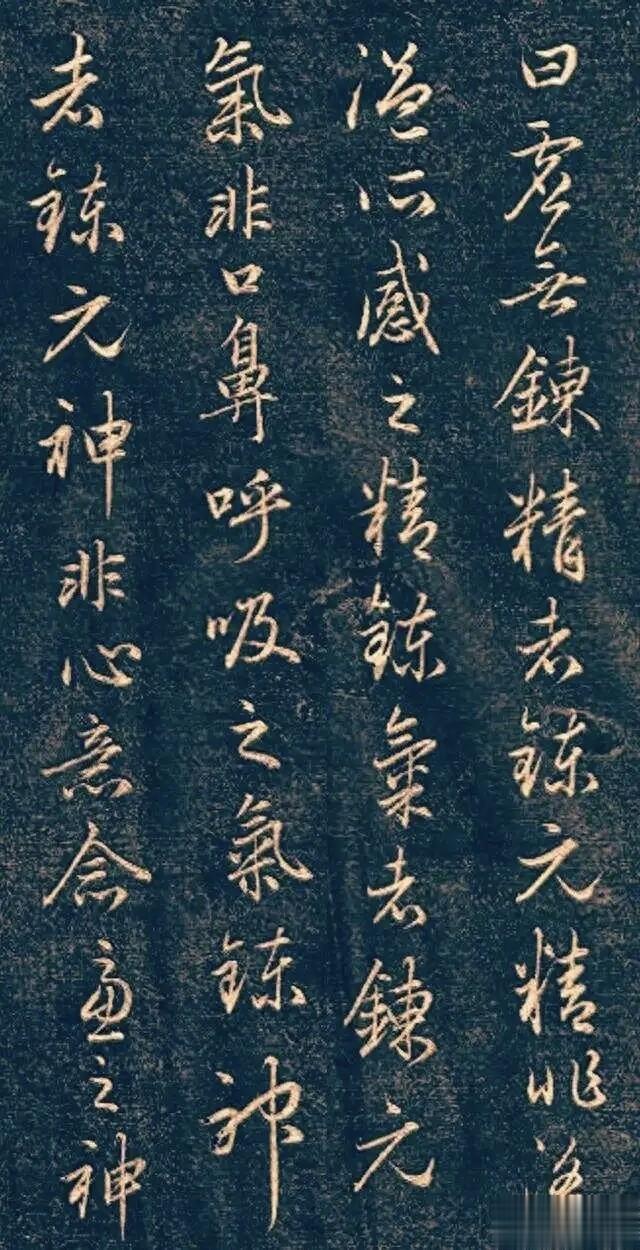 曰虛無鍊精者鍊元精非
溢所感之精鍊氣者鍊元
氣非口鼻呼吸之氣鍊神
者鍊元神非心意念慮之神